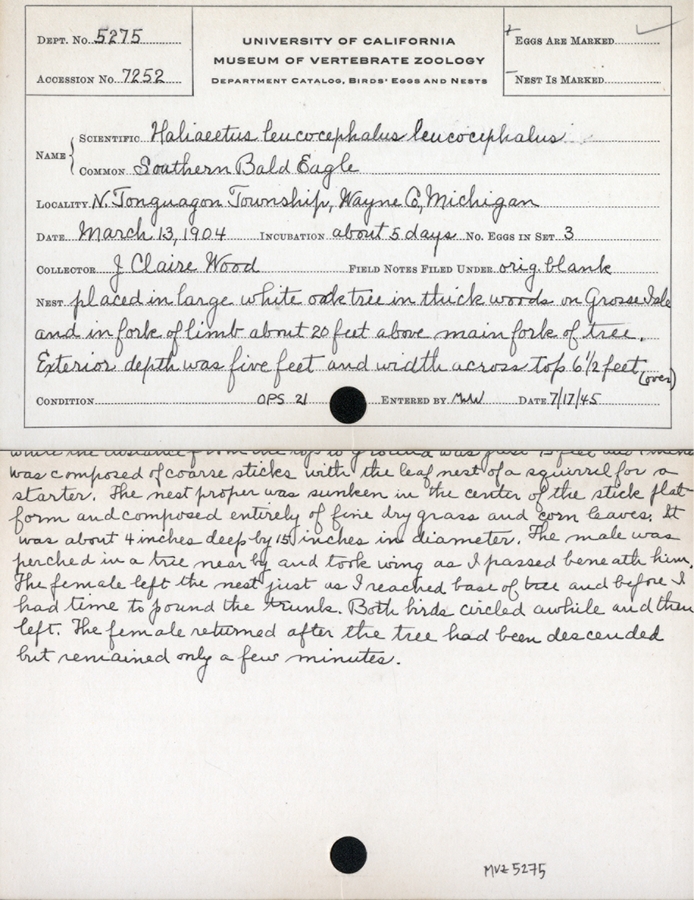 DEPT. No. 5275
ACCESSION No. 7252
UNIVERSITY OF CALIFORNIA
MUSEUM OF VERTEBRATE ZOOLOGY
DEPARTMENT CATALOG, BIRDS' EGGS AND NESTS
+ EGGS ARE MARKED
- NEST IS MARKED
NAME
SCIENTIFIC Haliaeetus leucocephalus leucocephalus
COMMON Southern Bald Eagle
LOCALITY N. Tonguagon Township, Wayne Co, Michigan
DATE March 13, 1904 INCUBATION about 5 days No. EGGS IN SET 3
COLLECTOR J Claire Wood FIELD NOTES FILED UNDER orig. blank
NEST placed in large white oak tree in thick woods on Grosse Isle
and in fork of limb about 20 feet above main fork of tree.
Exterior depth was five feet and width across top 6 1/2 feet,
(over)
CONDITION OPS 21 ENTERED BY MW DATE 7/17/45
where the distance from the top to ground was just 75 feet and
was composed of coarse sticks with the leaf nest of a squirrel for a
starter. The nest proper was sunken in the center of the stick plat-
form and composed entirely of fine dry grass and corn leaves. It
was about 4 inches deep by 15 inches in diameter. The male was
perched in a tree near by and took wing as I passed beneath him.
The female left the nest just as I reached base of tree and before I
had time to pound the trunk. Both birds circled awhile and then
left. The female returned after the tree had been descended
but remained only a few minutes.
MVZ 5275